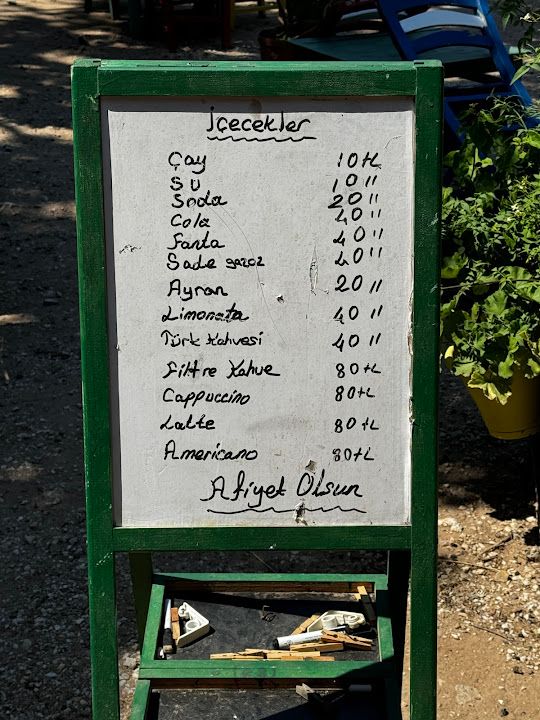 İçecekler
Çay 10 TL
Su 10 "
Soda 20 "
Cola 40 "
Fanta 40 "
Sade gazoz 40 "
Ayran 20 "
Limonata 40 "
Türk Kahvesi 40 "
Filtre Kahve 80 TL
Cappuccino 80 TL
Latte 80 TL
Americano 80 TL
Afiyet Olsun